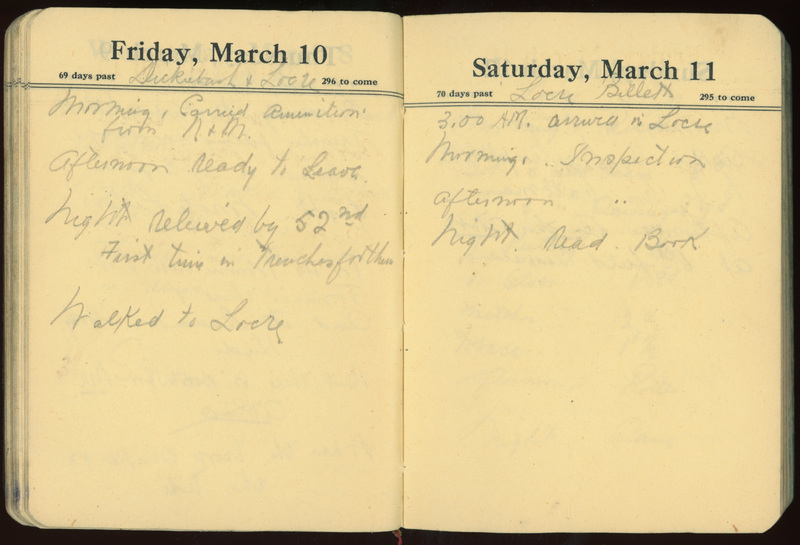 Friday, March 10
69 days past Dickiebush & Locre 296 to come
Morning, Carried Ammunition
from
Afternoon ready to Leave.
Night releived by 52nd
First time in Trenches for them
Walked to Locre
Saturday, March 11
70 days past Locre Billets 295 to come
3.00 AM. arrived in Locre
Morning, . Inspection
Afternoon "
Night read. Book